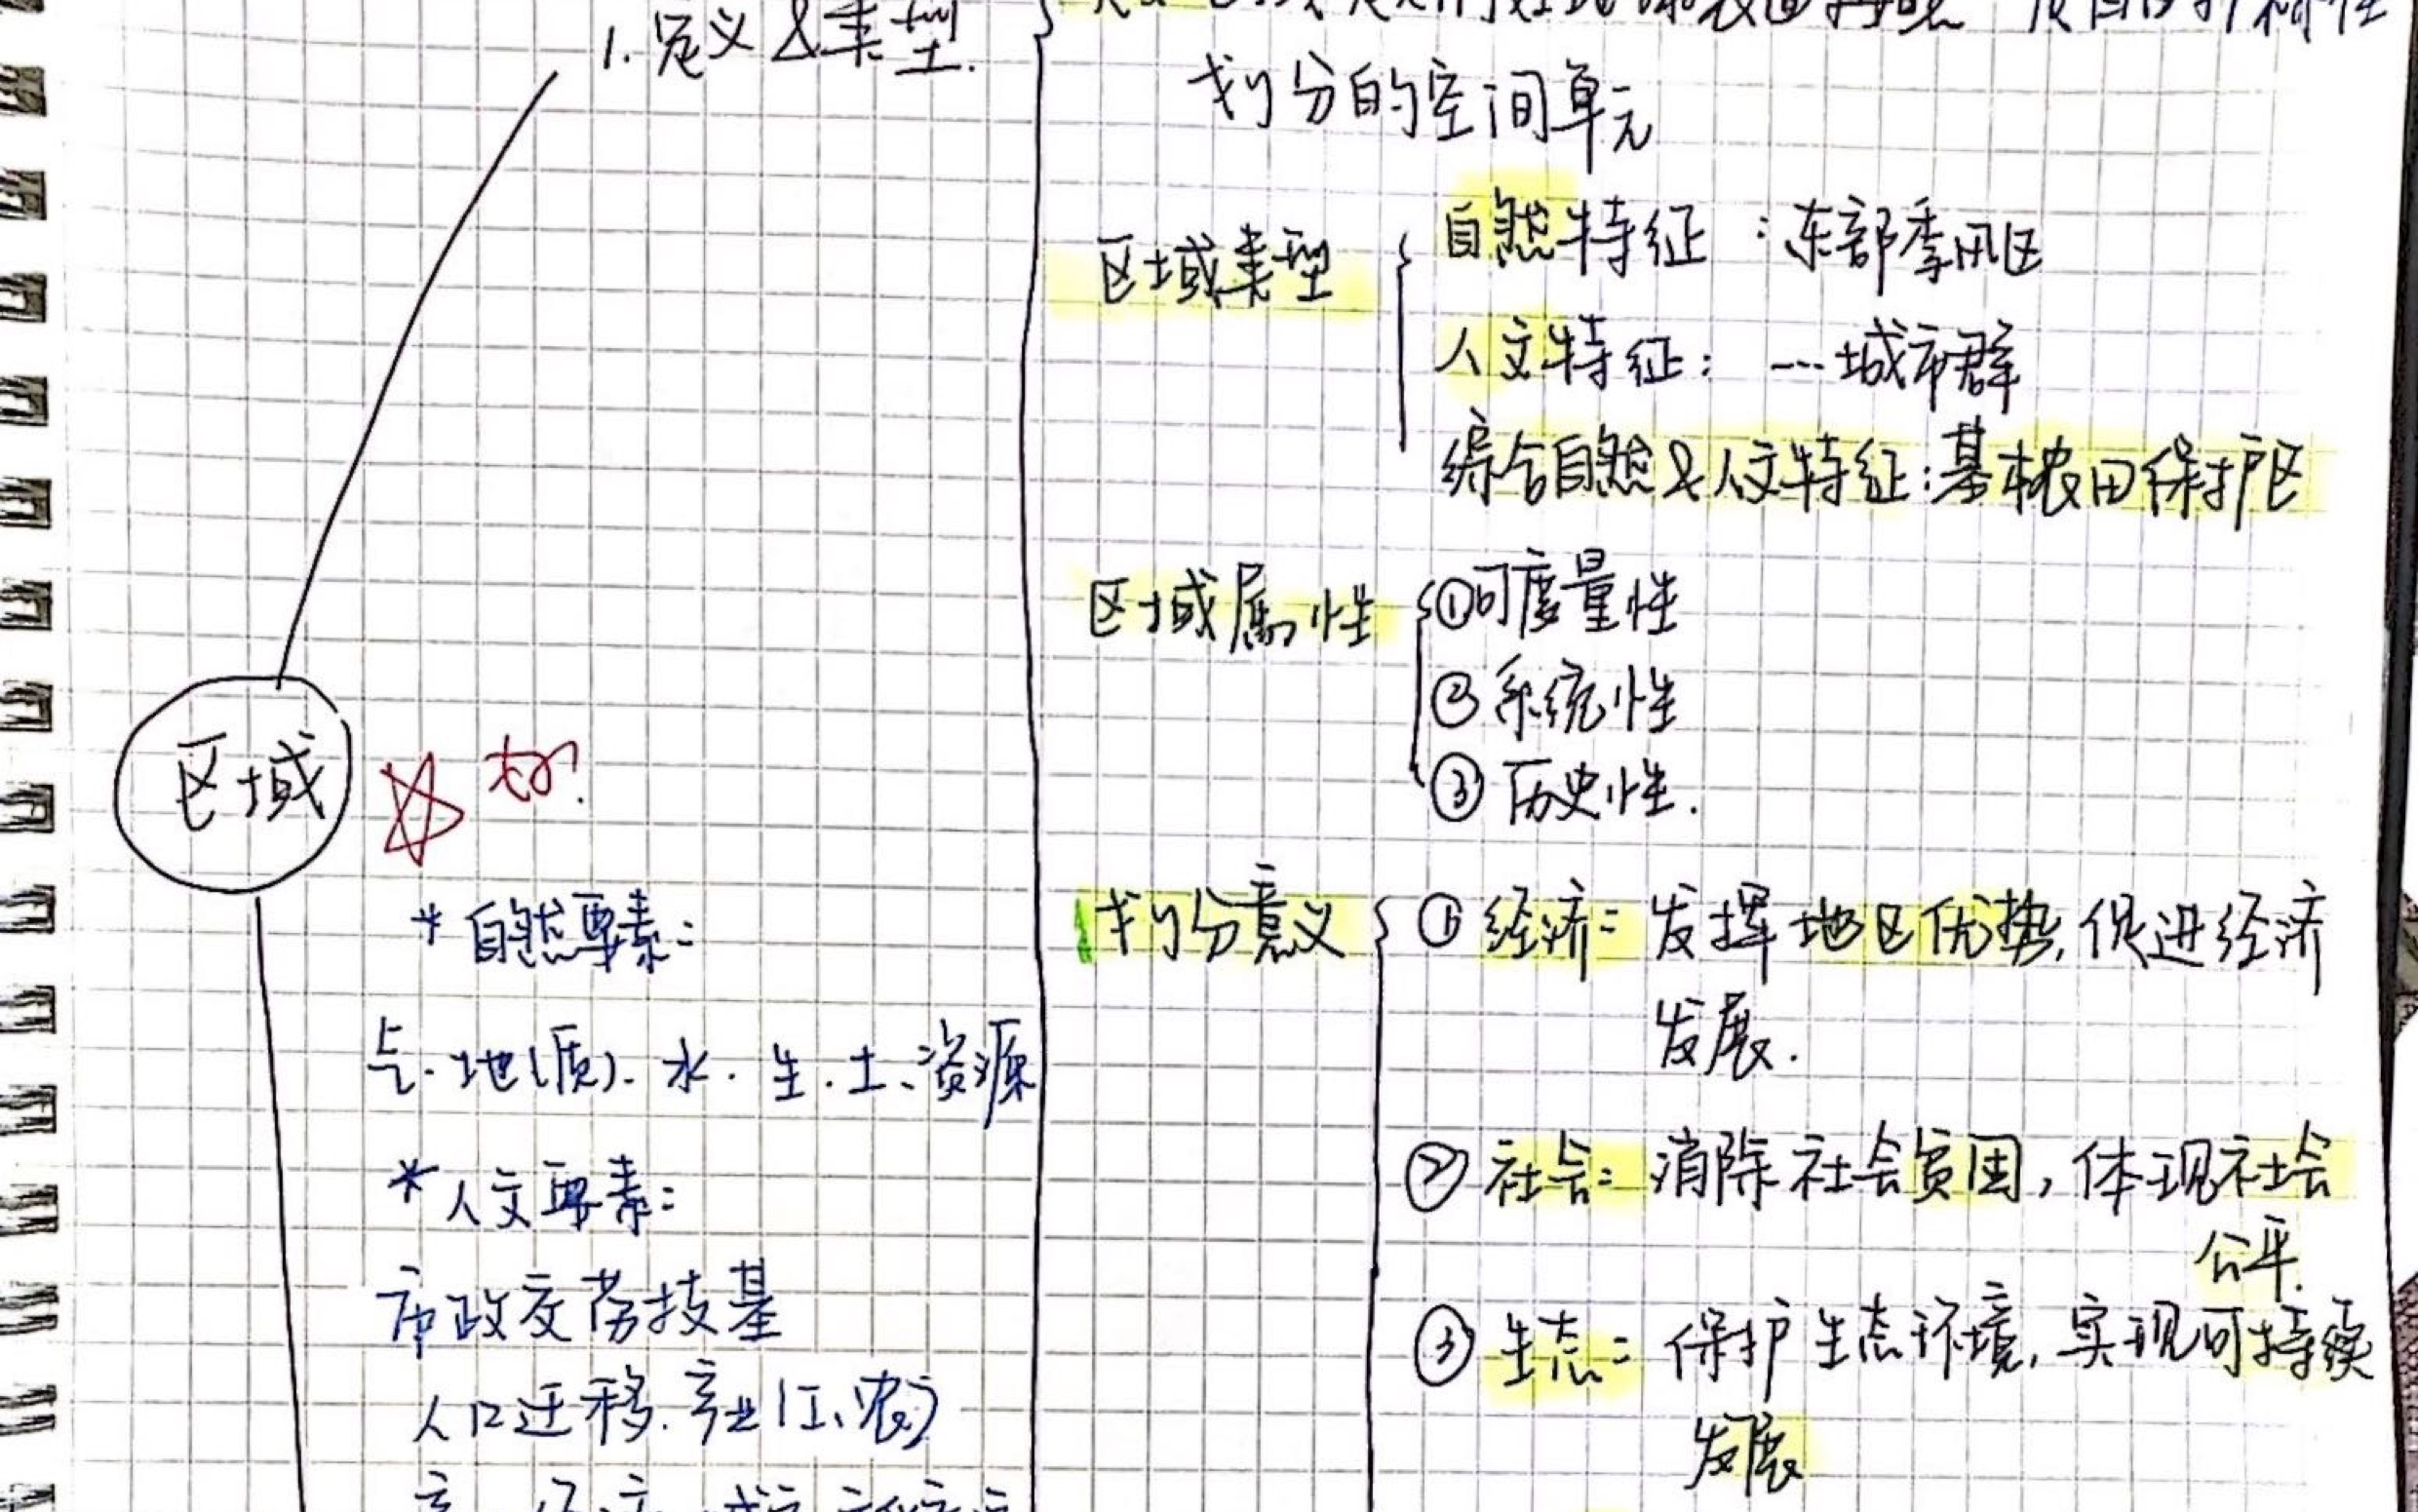 1. 定义&类型.
划分的空间单元
区域类型
自然特征：东部季风区
人文特征：…城市群
综合自然&人文特征：基本农田保护区
区域属性
①可度量性
②系统性
③历史性.
区域
好.
划分意义
①经济：发挥地区优势,促进经济
发展.
②社会：消除社会贫困，体现社会
公平.
③生态：保护生态环境,实现可持续
发展
*自然要素：
气.地(质).水.生.土、资源
*人文要素：
市政交劳技基
人口迁移.产业(工、农)